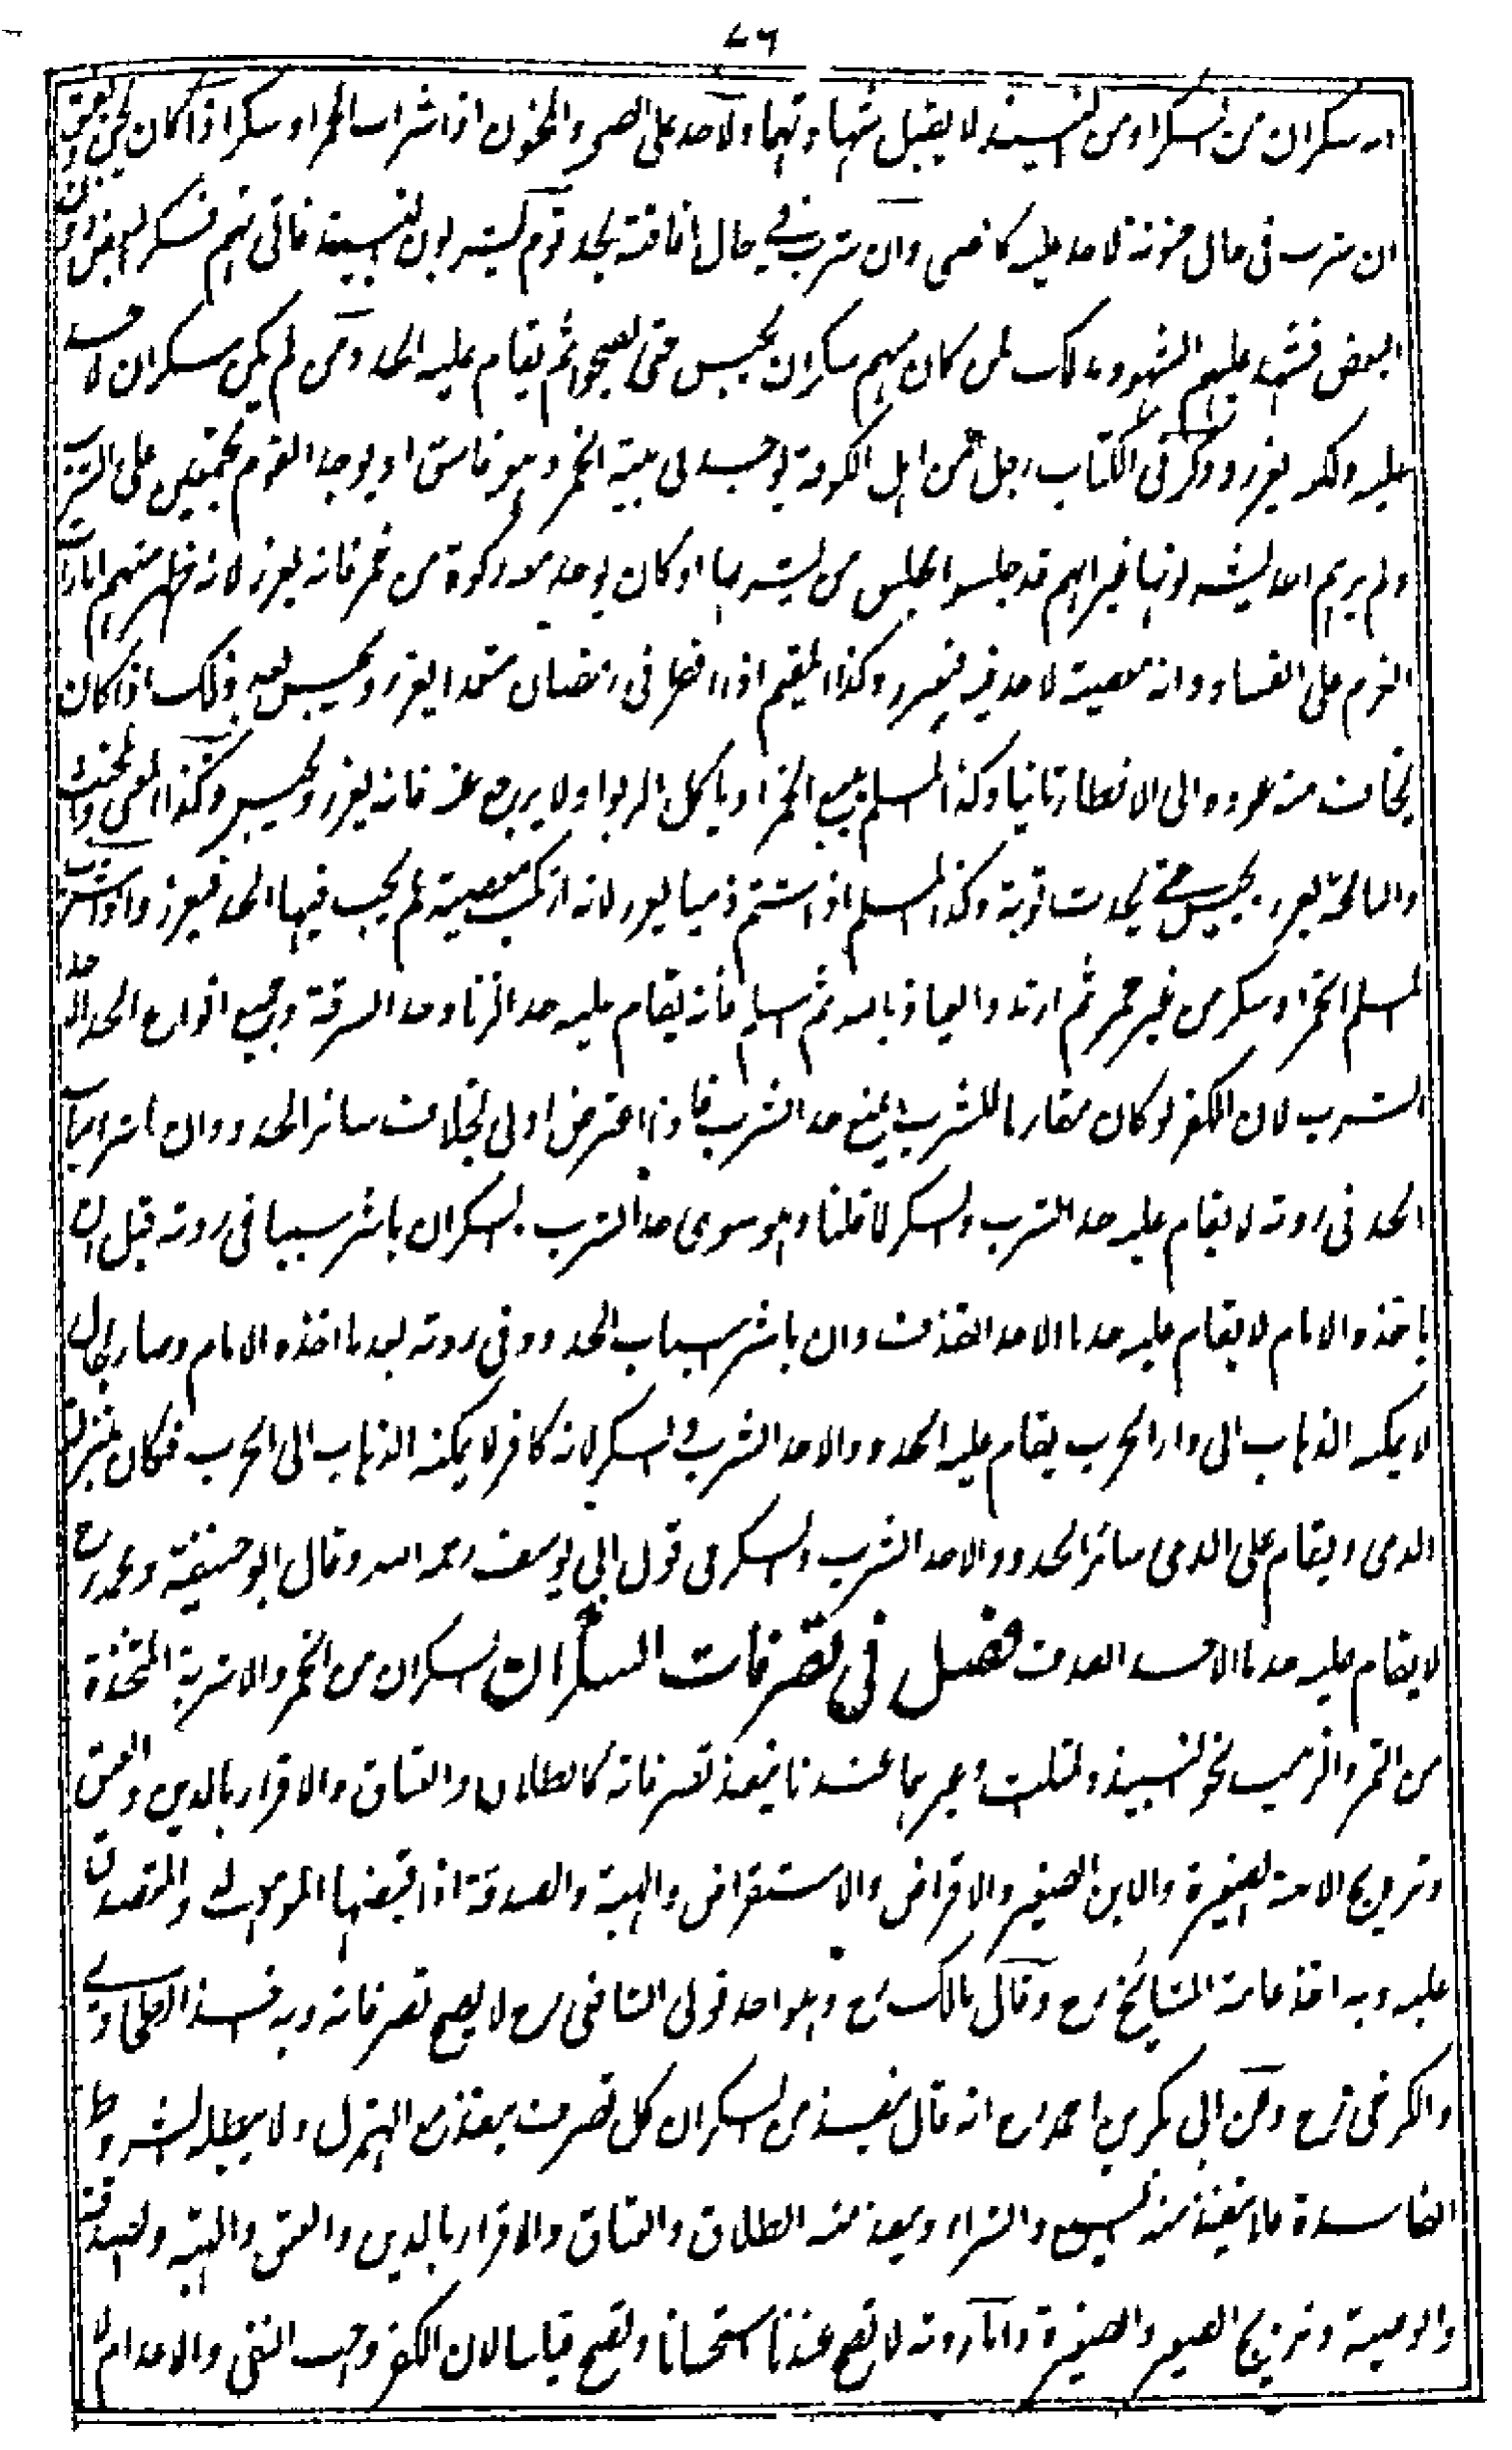 ٧٦
انه سكران من السكر او من النبيذ لا يقبل شهادتهما ولا حد على الصبى والمجنون اذا شرب الخمر او سكر اذا كان يجن ويفيق
ان شرب فى حال جنونه لا حد عليه كالصبى وان شرب فى حال افاقته يحد قوم يشربون النبيذ فاتى بهم فسكر البعض دون
البعض فشهد عليهم الشهود بذلك فمن كان منهم سكران يحبس حتى يصحو ثم يقام عليه الحد ومن لم يكن سكران لا حد
عليه ولكنه يعزر وذكر فى الكتاب رجل من اهل الكوفة يوجد فى بيته الخمر وهو فاسق او يوجد القوم مجتمعين على الشراب
ولم يرهم احد يشربونها غير انهم قد جلسوا مجلس من يشربها او كان يوجد معه ركوة من خمر فانه يعزر لانه ظهر منهم امارات
العزم على الفساد وانه معصية لا حد فيه فيعزر وكذا المقيم اذا افطر فى رمضان متعمدا يعزر ويحبس بعد ذلك اذا كان
يخاف منه عوده الى الافطار ثانيا وكذا المسلم يبيع الخمر او ياكل الربوا ولا يرجع عنه فانه يعزر ويحبس وكذا المغنى والمخنث
والنائحة يعزر ويحبس حتى يحدث توبة وكذا المسلم اذا شتم ذميا يعزر لانه ارتكب معصية لم يجب فيها الحد فيعزر واذا شرب
المسلم الخمر او سكر من غير خمر ثم ارتد والعياذ بالله ثم اسلم فانه يقام عليه حد الزنا وحد السرقة وجميع انواع الحد الا حد
الشرب لان الكفر لو كان مقارنا للشرب يمنع حد الشرب فاذا اعترض اولى بخلاف سائر الحدود وان باشر اسباب
الحد فى ردته لا يقام عليه حد الشرب والسكر لما قلنا وهو سوى حد الشرب والسكر ان باشر سببا فى ردته قبل ان
ياخذه الامام لا يقام عليه حد ما الا حد القذف وان باشر اسباب الحدود فى ردته بعد ما اخذه الامام وصار بحال
لا يمكنه الذهاب الى دار الحرب يقام عليه الحدود الا حد الشرب والسكر لانه كافر لا يمكنه الذهاب الى الحرب فكان بمنزلة
الذمى ويقام على الذمى سائر الحدود الا حد الشرب والسكر فى قول ابى يوسف رحمه الله وقال ابو حنيفة ومحمد رح
لا يقام عليه حد ما الا حد القذف فصل فى تصرفات السكران السكران من الخمر والاشربة المتخذة
من التمر والزبيب نحو النبيذ والمثلث وغيرهما عندنا ينفذ تصرفاته كالطلاق والعتاق والاقرار بالدين والعين
وتزويج الابنة الصغيرة والابن الصغير والاقراض والاستقراض والهبة والصدقة اذا قبضها الموهوب له والمتصدق
عليه وبه اخذ عامة المشايخ رح وقال مالك رح وهو احد قولى الشافعى رح لا يصح تصرفاته وبه اخذ الطحاوى
والكرخى رح وعن ابى بكر بن احمد رح انه قال ينفذ من السكران كل تصرف ينفذ مع الهزل ولا يبطله الشروط
الفاسدة فلا ينفذ منه البيع والشراء وينفذ منه الطلاق والعتاق والاقرار بالدين والعين والهبة والصدقة
والوصية وتزويج الصغير والصغيرة واما ردته لا تصح عندنا استحسانا وتصح قياسا لان الكفر واجب النفى والاعدام لا